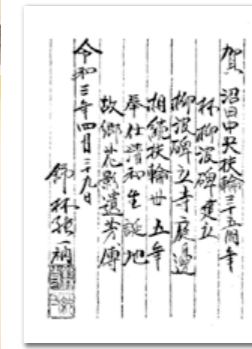 賀 沼田中央扶輪三十五周年
林柳波碑建立
柳波碑立寺庭邊
相繞扶輪廿五年
奉仕清和生誕地
故郷花影遺芳傳
令和三年四月二十九日